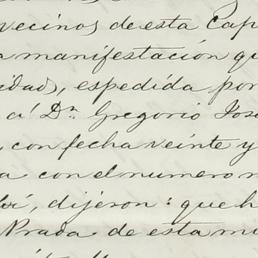 vecinos de esta Cap
a manifestación qu
cidad, expedida por
a D.n Gregorio José
, con fecha veinte y
a con el numero n
bí, dijeron: que h
Prada de esta mi